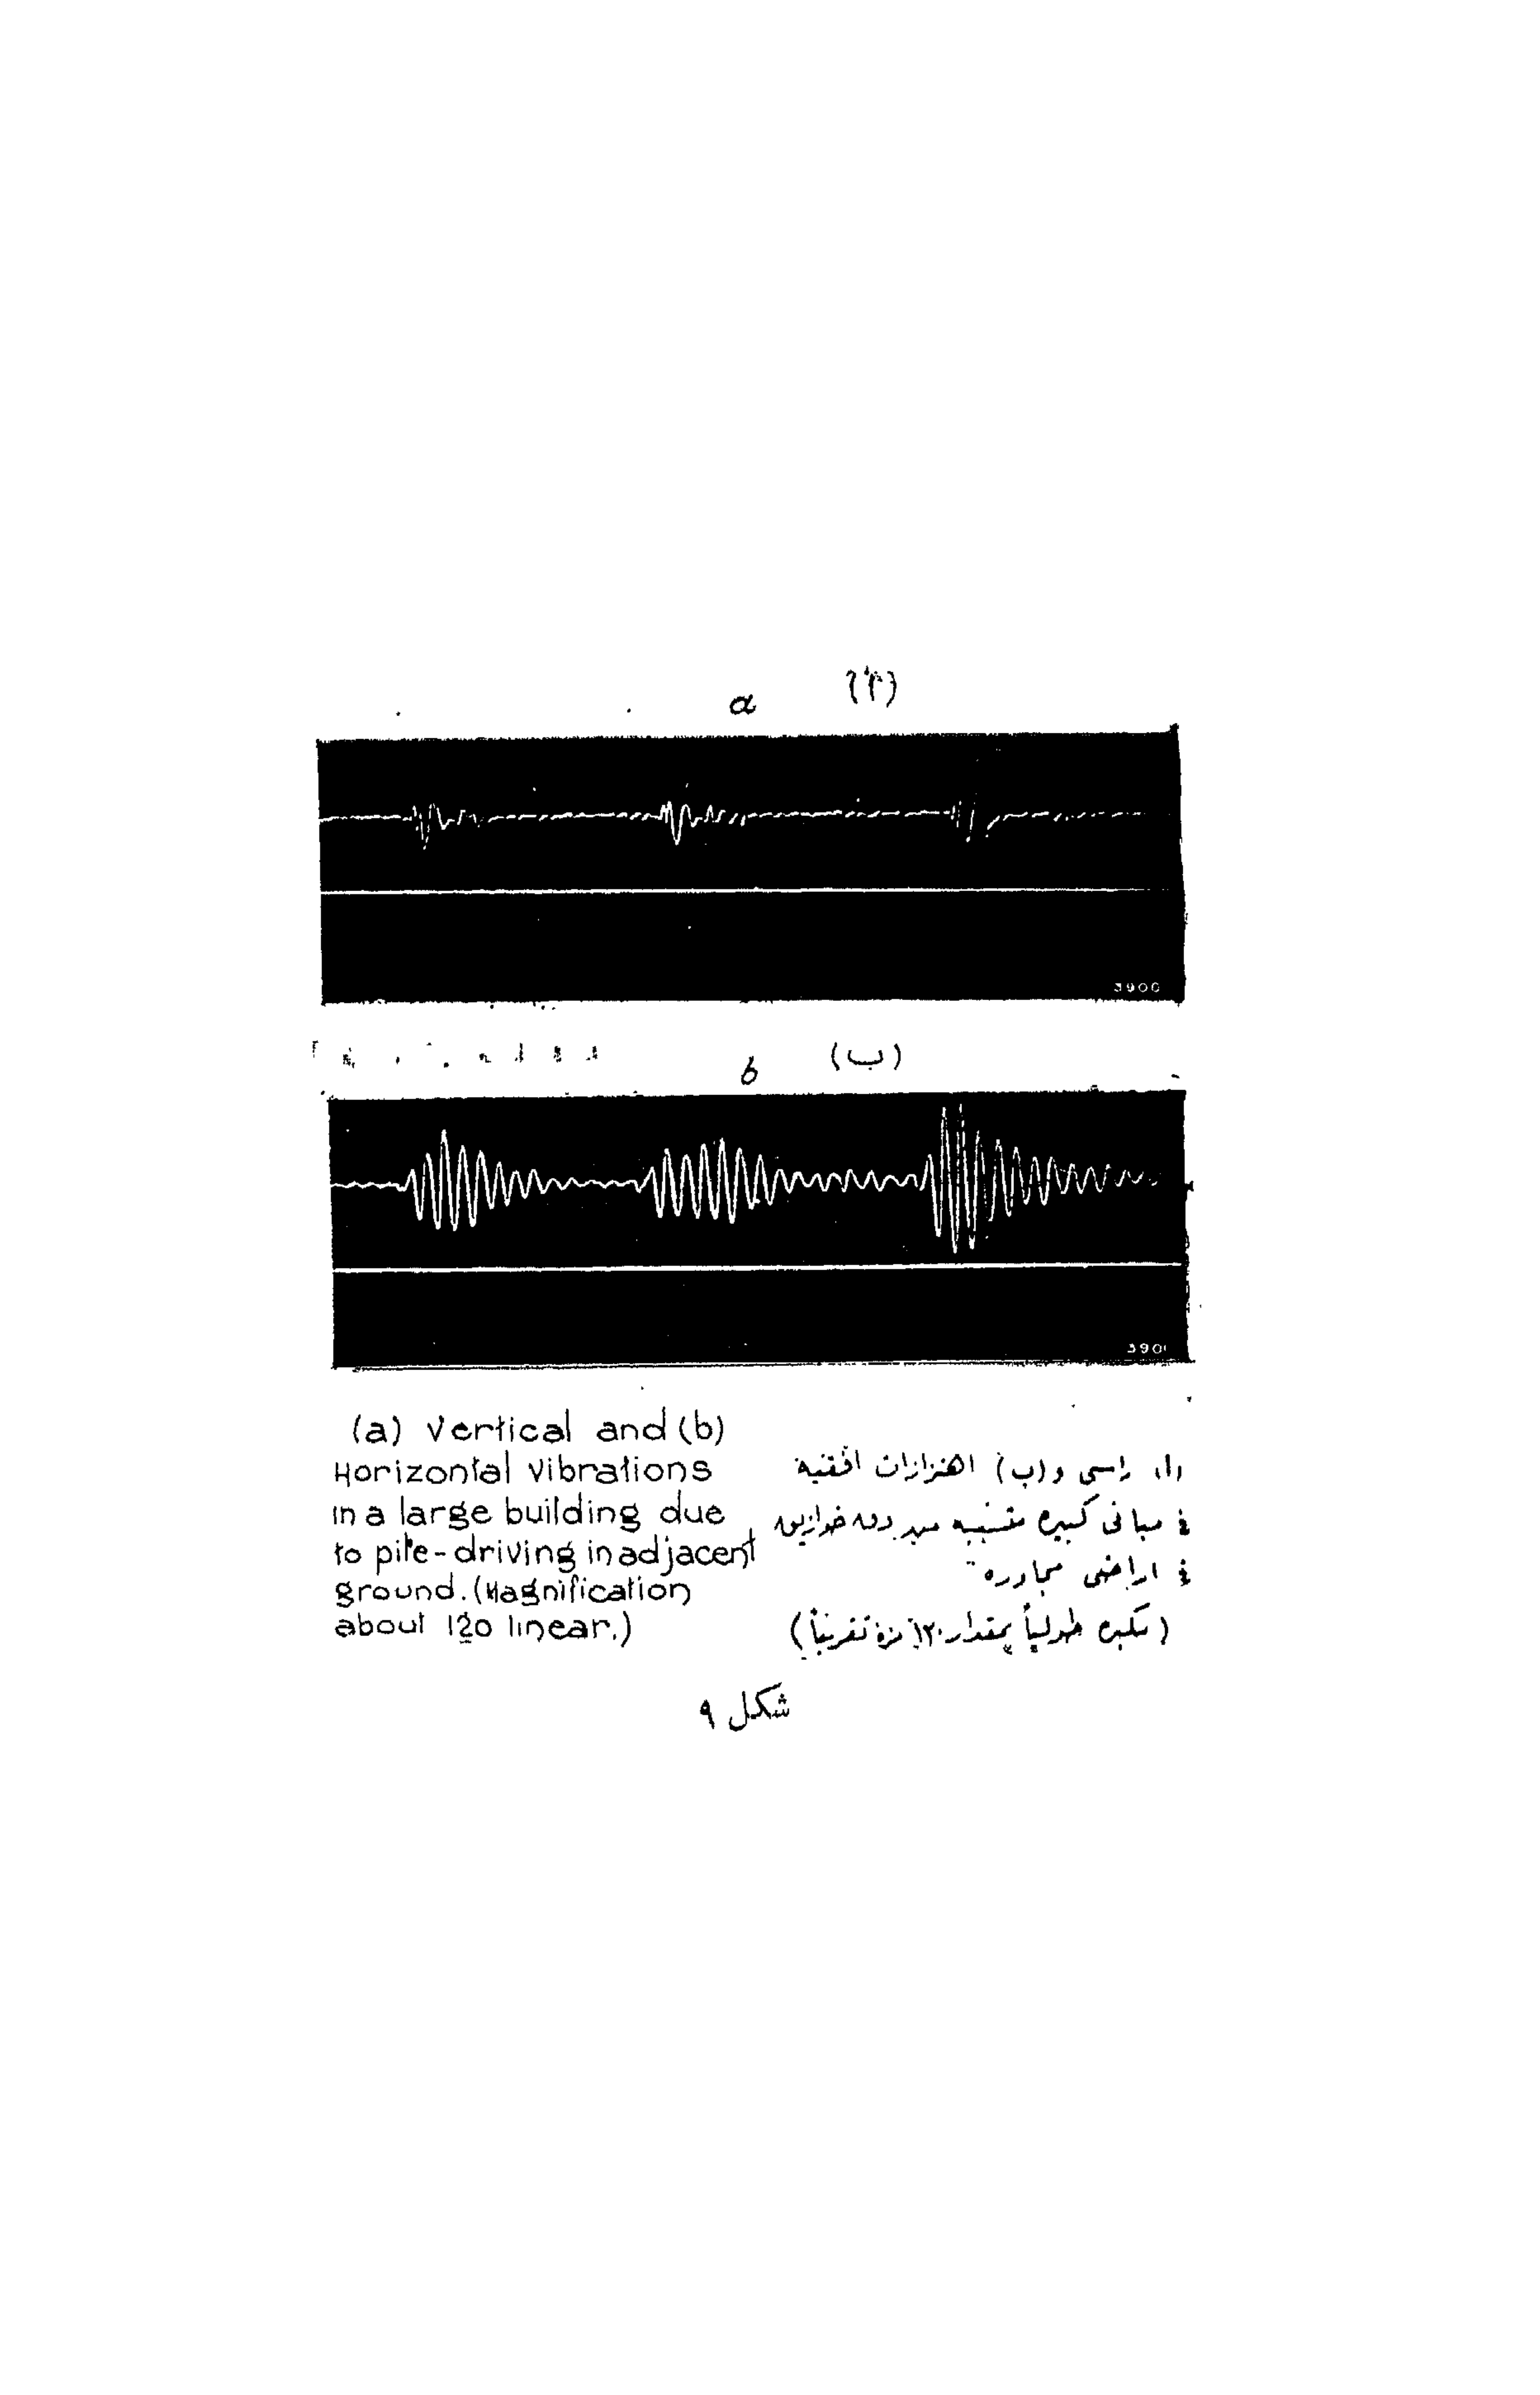 a (أ)
3900
b (ب)
390
(a) Vertical and (b)
Horizontal Vibrations
in a large building due
to pile-driving in adjacent
ground. (Magnification
about 120 linear.)
(أ) راسى و (ب) اهتزازات افقيه
فى مبانى كبيره متسببه من دق خوازيق
فى اراضى مجاوره
(مكبره طولياً بمقدار ١٢٠ مرة تقريباً)
شكل ٩